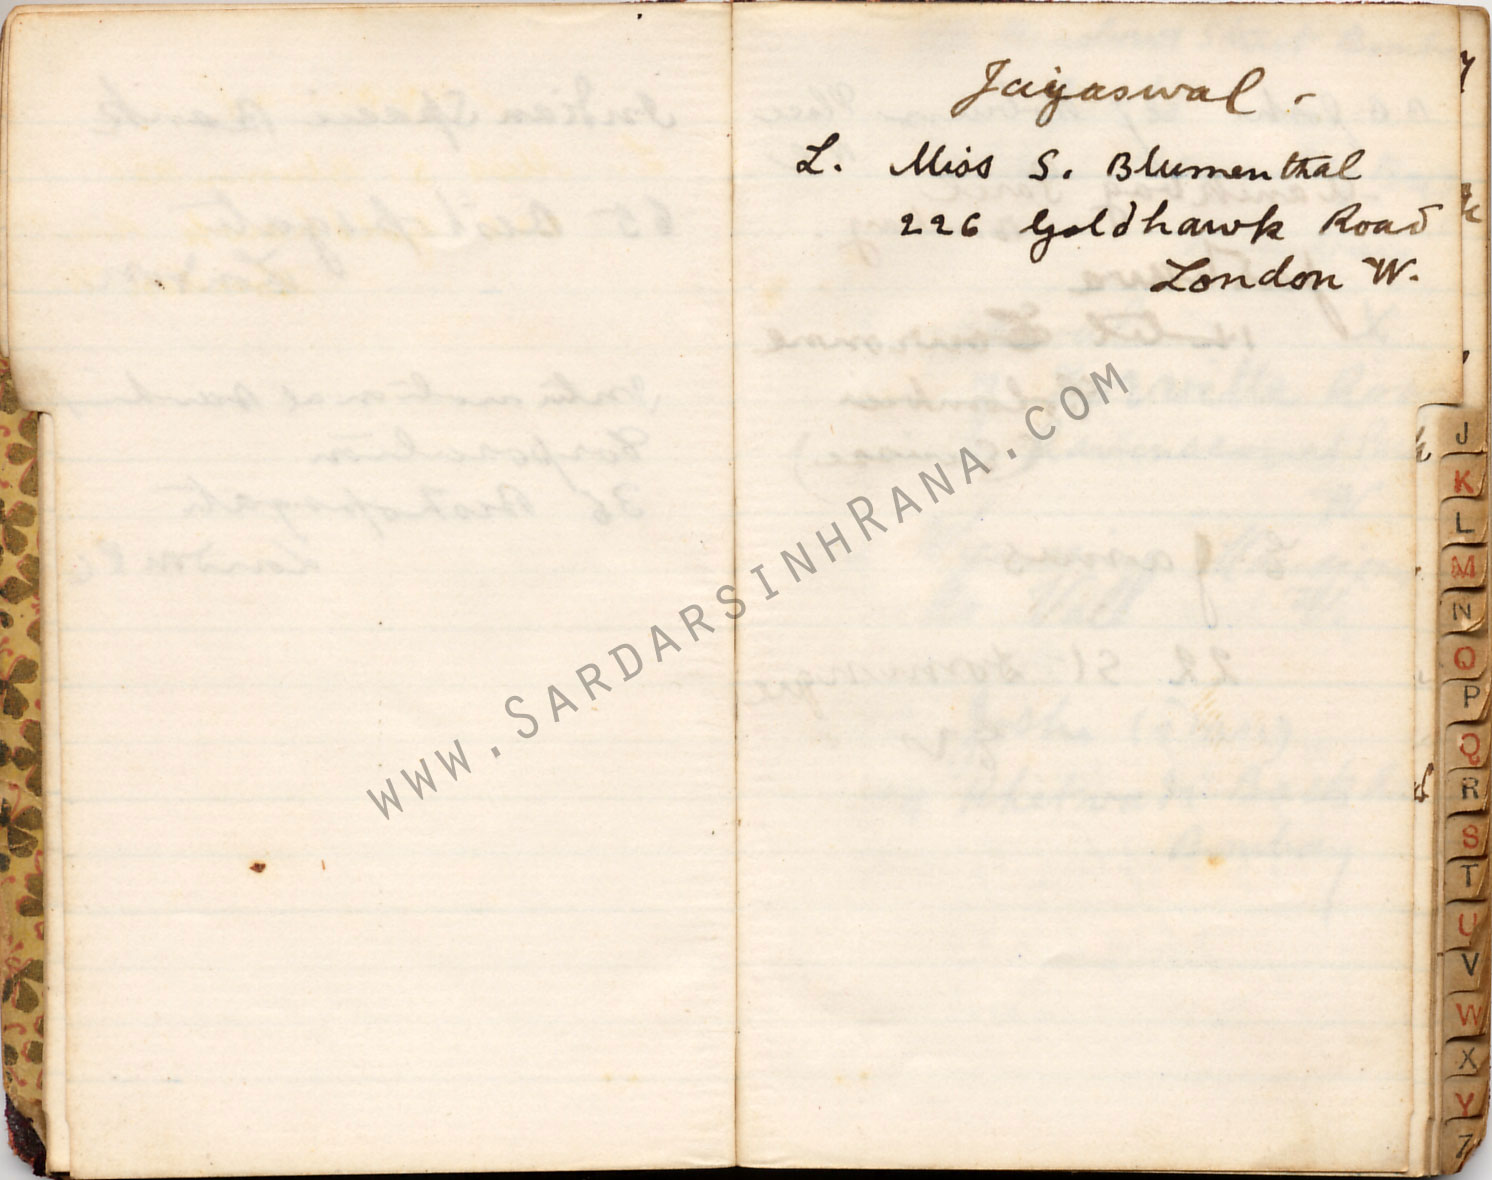 Jayaswal -
L. Miss S. Blumenthal
226 Goldhawk Road
London W.
www.SardarsinhRana.com
J
K
L
M
N
O
P
Q
R
S
T
U
V
W
X
Y
Z